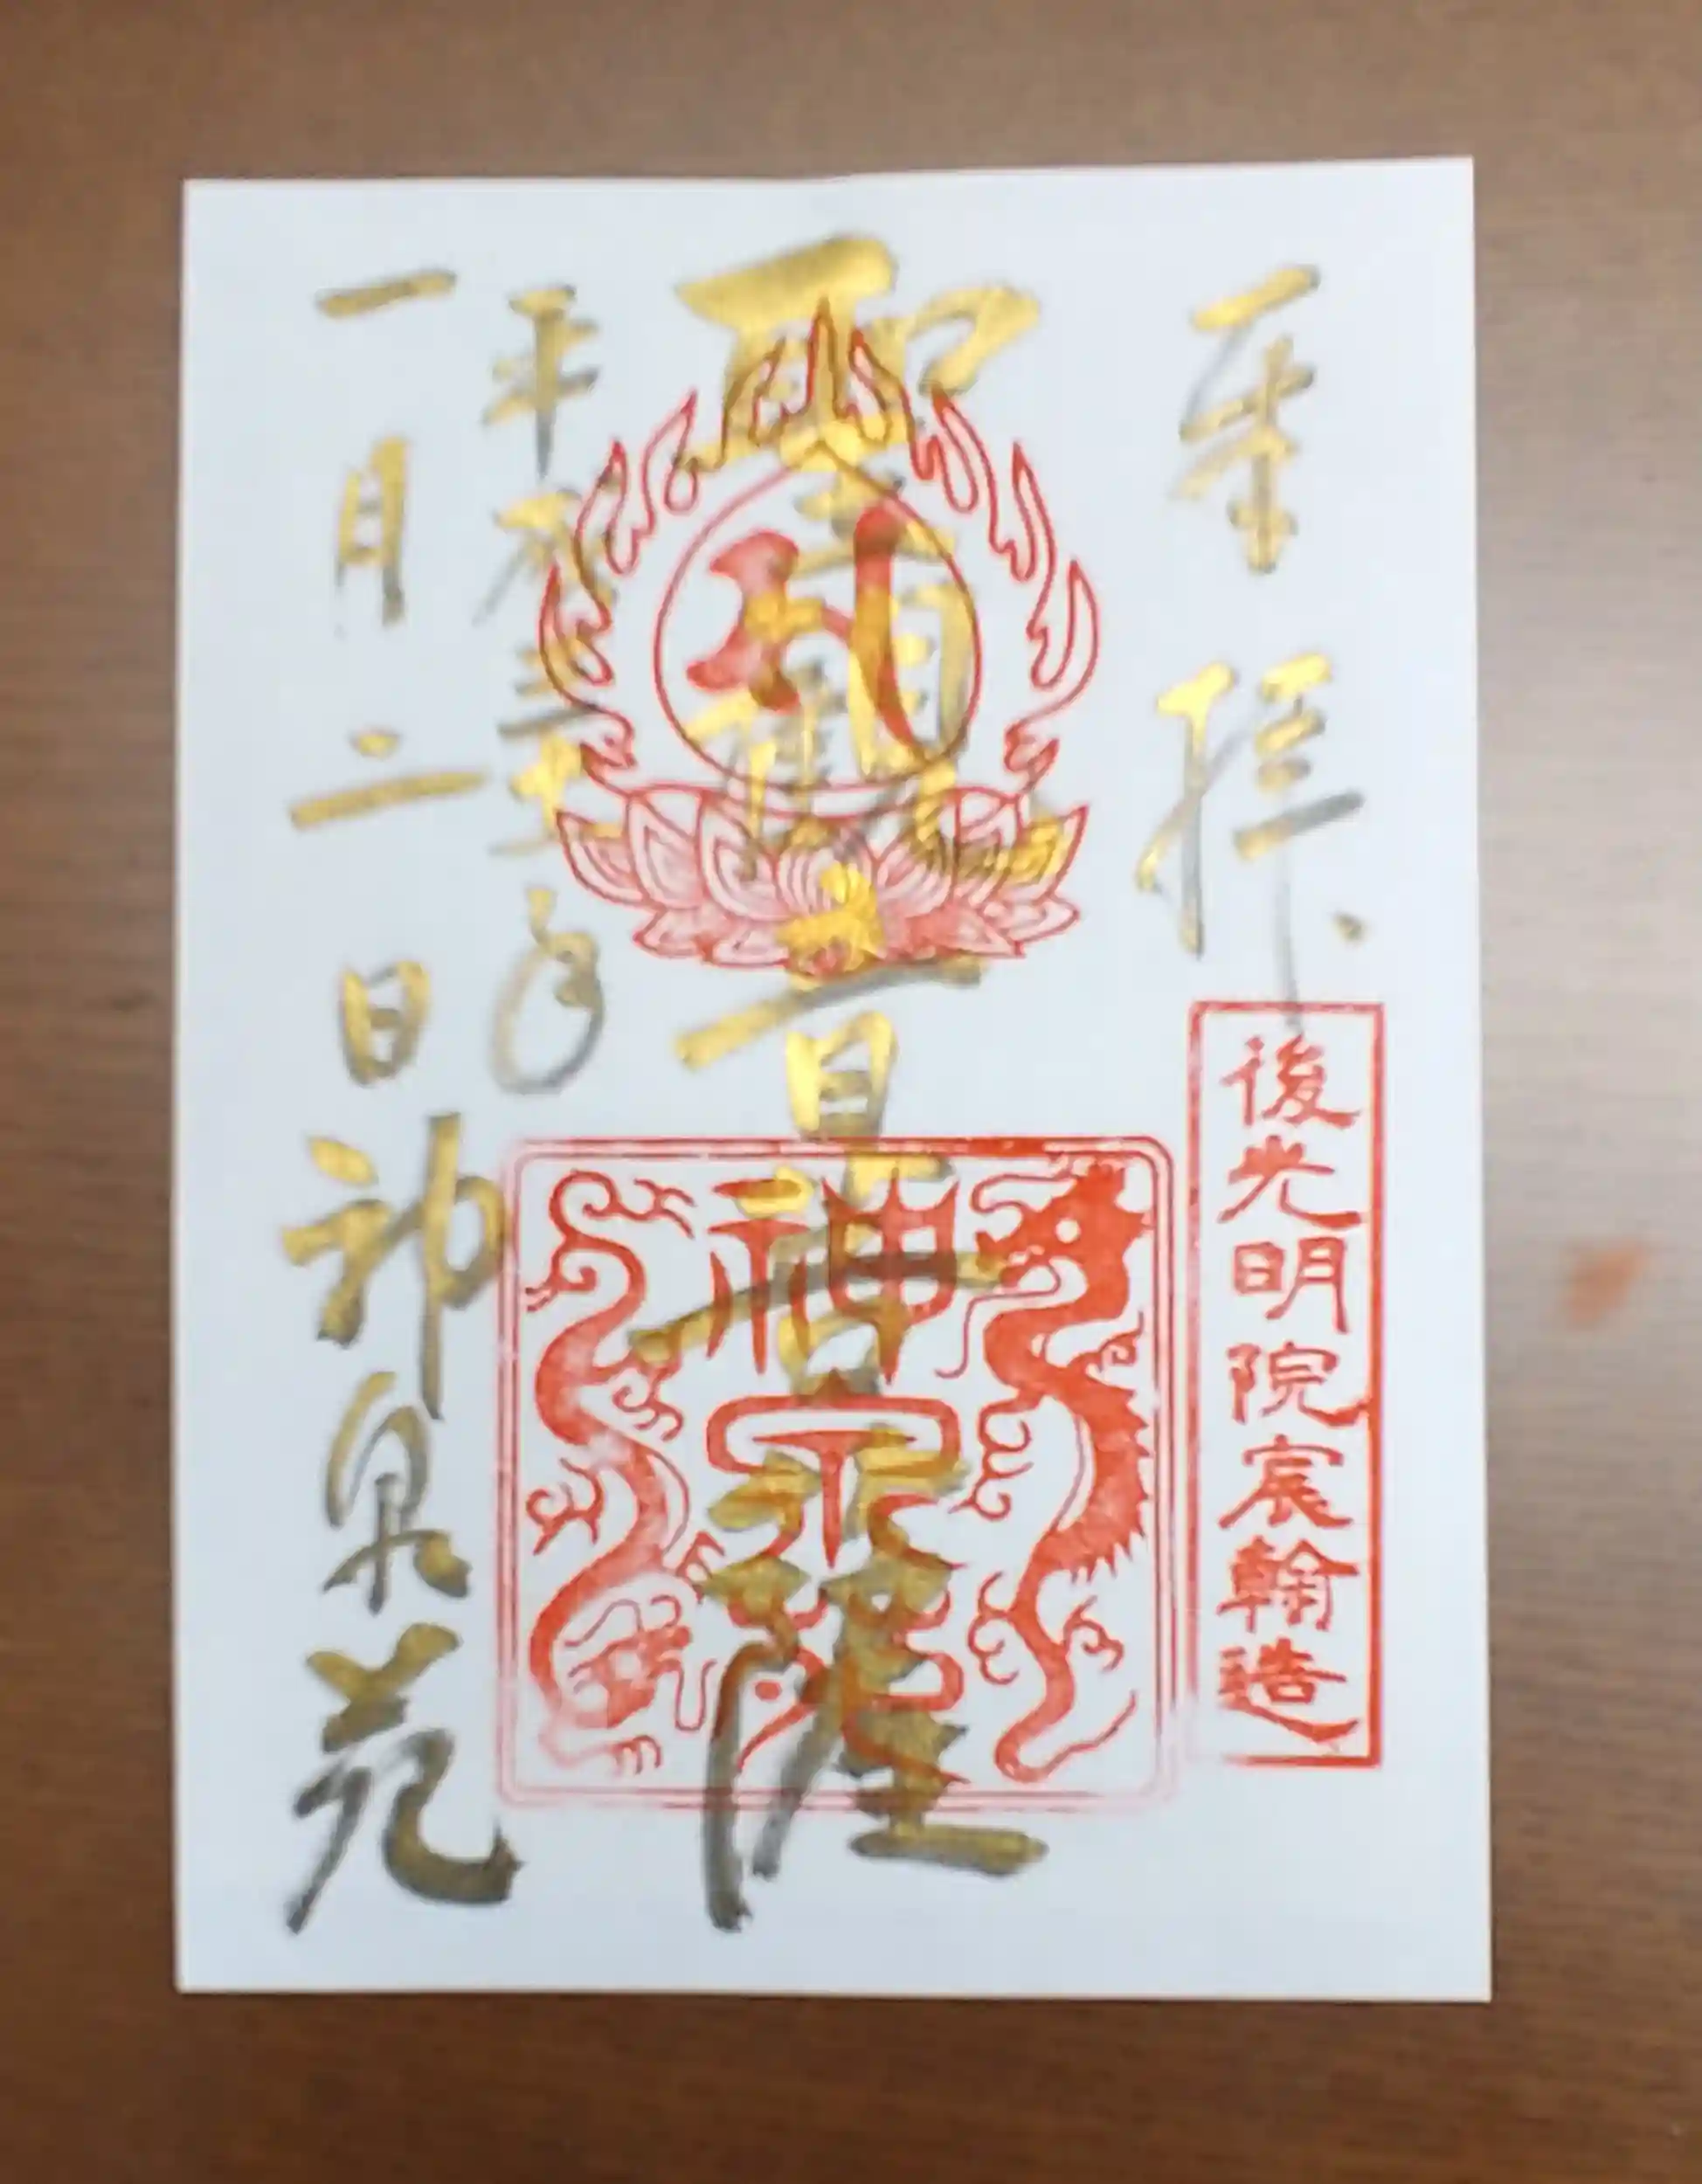 奉拝
後光明院宸翰造
聖観音菩薩
神泉苑
平成三十一年
一月二日神泉苑